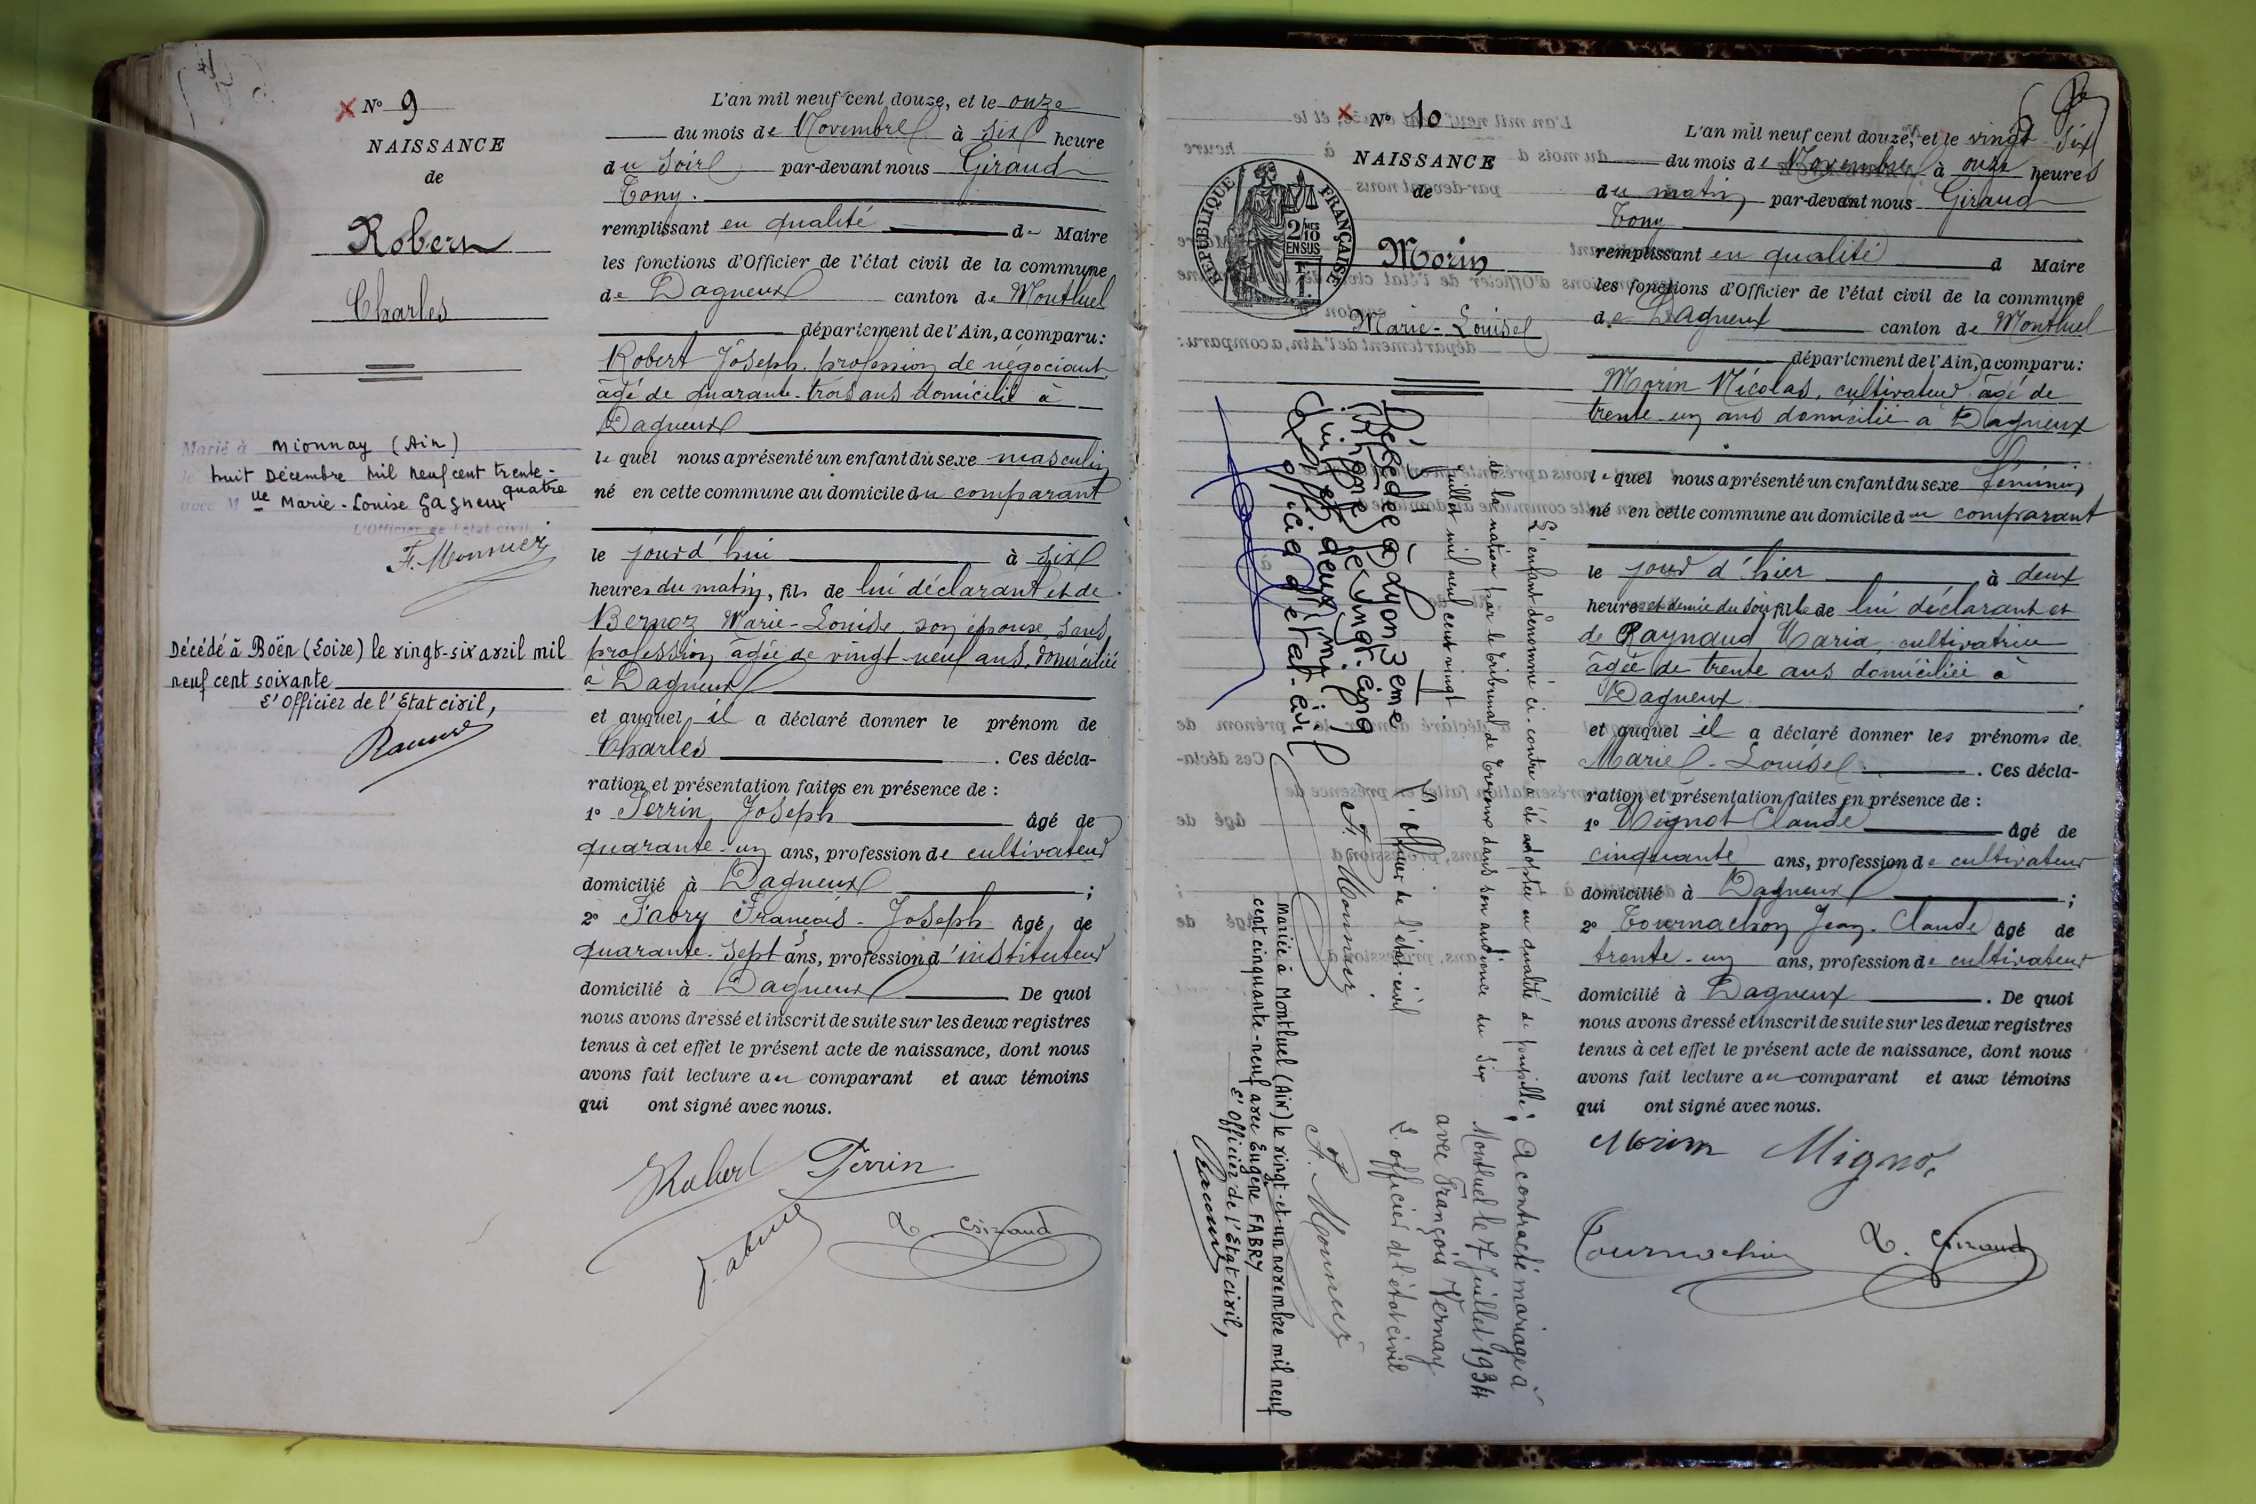 N° 9
NAISSANCE
de
Robert
Charles
Marié à Mionnay (Ain)
le huit Décembre mil neuf cent trente-
quatre
avec Mlle Marie-Louise Gagneux
L'Officier de l'état civil,
F. Monnier
Décédé à Böën (Loire) le vingt-six avril mil
neuf cent soixante
L'Officier de l'Etat civil,
L'an mil neuf cent douze, et le onze
du mois de Novembre à six heure
du soir par-devant nous Giraud
Tony.
remplissant en qualité de Maire
les fonctions d'Officier de l'état civil de la commune
de Dagneux canton de Montluel
département de l'Ain, a comparu:
Robert Joseph. profession de négociant
âgé de quarante-trois ans domicilié à
Dagneux
lequel nous a présenté un enfant du sexe masculin
né en cette commune au domicile du comparant
le jourd'hui à six
heures du matin, fils de lui déclarant et de
Bernoz Marie-Louise, son épouse, sans
profession, âgée de vingt-neuf ans, domiciliée
à Dagneux
et auquel il a déclaré donner le prénom de
Charles . Ces décla-
ration et présentation faites en présence de :
1° Perrin Joseph âgé de
quarante-un ans, profession de cultivateur
domicilié à Dagneux ;
2° Fabry François-Joseph âgé de
quarante-sept ans, profession d'instituteur
domicilié à Dagneux De quoi
nous avons dressé et inscrit de suite sur les deux registres
tenus à cet effet le présent acte de naissance, dont nous
avons fait lecture au comparant et aux témoins
qui ont signé avec nous.
Robert Perrin
Fabry T. Giraud
N° 10
NAISSANCE
de
Morin
Marie-Louise
RÉPUBLIQUE FRANÇAISE
2/10 EN SUS
Décédée à Lyon 3eme
(Rhône) le vingt-cinq
juin deux mil
L'officier d'état-civil
L'enfant dénommé ci-contre a été adoptée en qualité de pupille
de la nation par le tribunal de Trévoux dans son audience du six
juillet mil neuf cent vingt.
L'officier de l'état-civil
A. Monnier
A contracté mariage à
Montluel le 7 Juillet 1934
avec François Vernay
L'officier de l'état civil
A. Monnier
Mariée à Montluel (Ain) le vingt-et-un novembre mil neuf
cent cinquante-neuf avec Eugène FABRY
L'Officier de l'Etat civil,
L'an mil neuf cent douze, et le vingt six
du mois de Novembre à onze heures
du matin par-devant nous Giraud
Tony
remplissant en qualité d Maire
les fonctions d'Officier de l'état civil de la commune
de Dagneux canton de Montluel
département de l'Ain, a comparu:
Morin Nicolas, cultivateur âgé de
trente-un ans domicilié à Dagneux
lequel nous a présenté un enfant du sexe féminin
né en cette commune au domicile du comparant
le jour d'hier à deux
heures et demie du soir fille de lui déclarant et
de Raynaud Maria, cultivatrice
âgée de trente ans domiciliée à
Dagneux
et auquel il a déclaré donner les prénoms de
Marie-Louise . Ces décla-
ration et présentation faites en présence de :
1° Mignot Claude âgé de
cinquante ans, profession de cultivateur
domicilié à Dagneux ;
2° Tournachon Jean-Claude âgé de
trente-un ans, profession de cultivateur
domicilié à Dagneux . De quoi
nous avons dressé et inscrit de suite sur les deux registres
tenus à cet effet le présent acte de naissance, dont nous
avons fait lecture au comparant et aux témoins
qui ont signé avec nous.
Morin Mignot
Tournachon T. Giraud